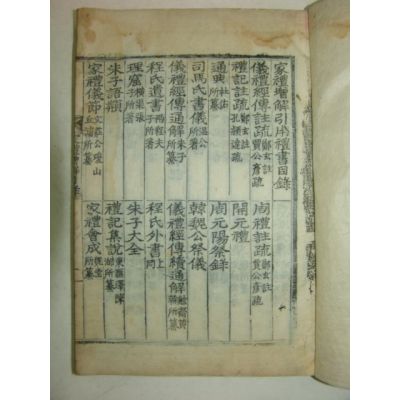 家禮增解引用禮書目錄
儀禮經傳註疏 鄭玄註 賈公彥疏
周禮註疏 鄭玄註 賈公彥疏
禮記註疏 鄭玄註 孔穎達疏
開元禮
通典 杜佑
周元陽祭錄
司馬氏書儀 溫公所著
韓魏公祭儀
儀禮經傳通解 朱子所纂
儀禮經傳續通解 勉齋黃榦所纂
程氏遺書 兩程夫子所著
程氏外書 上同
理窟 橫渠張子所著
朱子大全
朱子語類
禮記集說 東滙澤陳澔所纂
家禮儀節 文莊公瓊山丘濬所纂
家禮會成 所纂